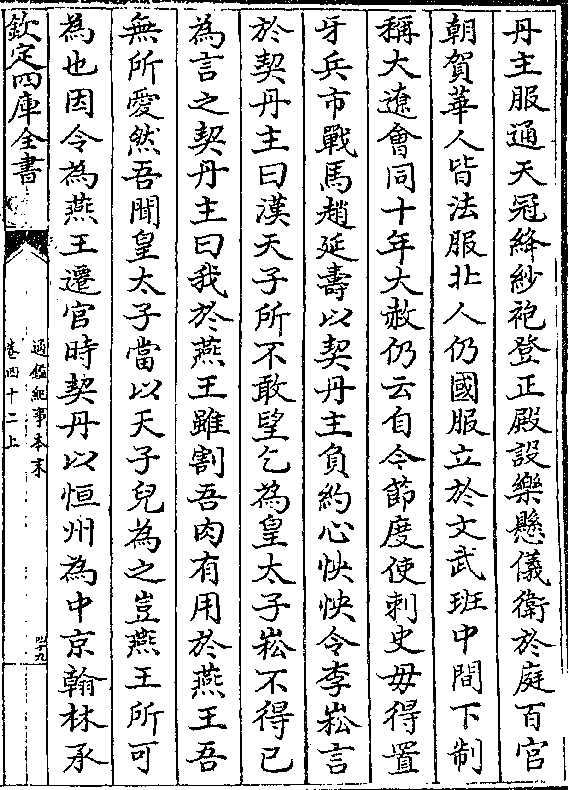 丹主服通天冠絳紗袍登正殿設樂懸儀衛於庭百官
朝賀華人皆法服北人仍國服立於文武班中間下制
稱大遼會同十年大赦仍云自今節度使刺史毋得置
牙兵市戰馬趙延壽以契丹主負約心怏怏令李崧言
於契丹主曰漢天子所不敢望乞為皇太子崧不得已
為言之契丹主曰我於燕王雖割吾肉有用於燕王吾
無所愛然吾聞皇太子當以天子兒為之豈燕王所可
為也因令為燕王遷官時契丹以恒州為中京翰林承
欽定四庫全書
通鑑紀事本末
卷四十二上
四十九